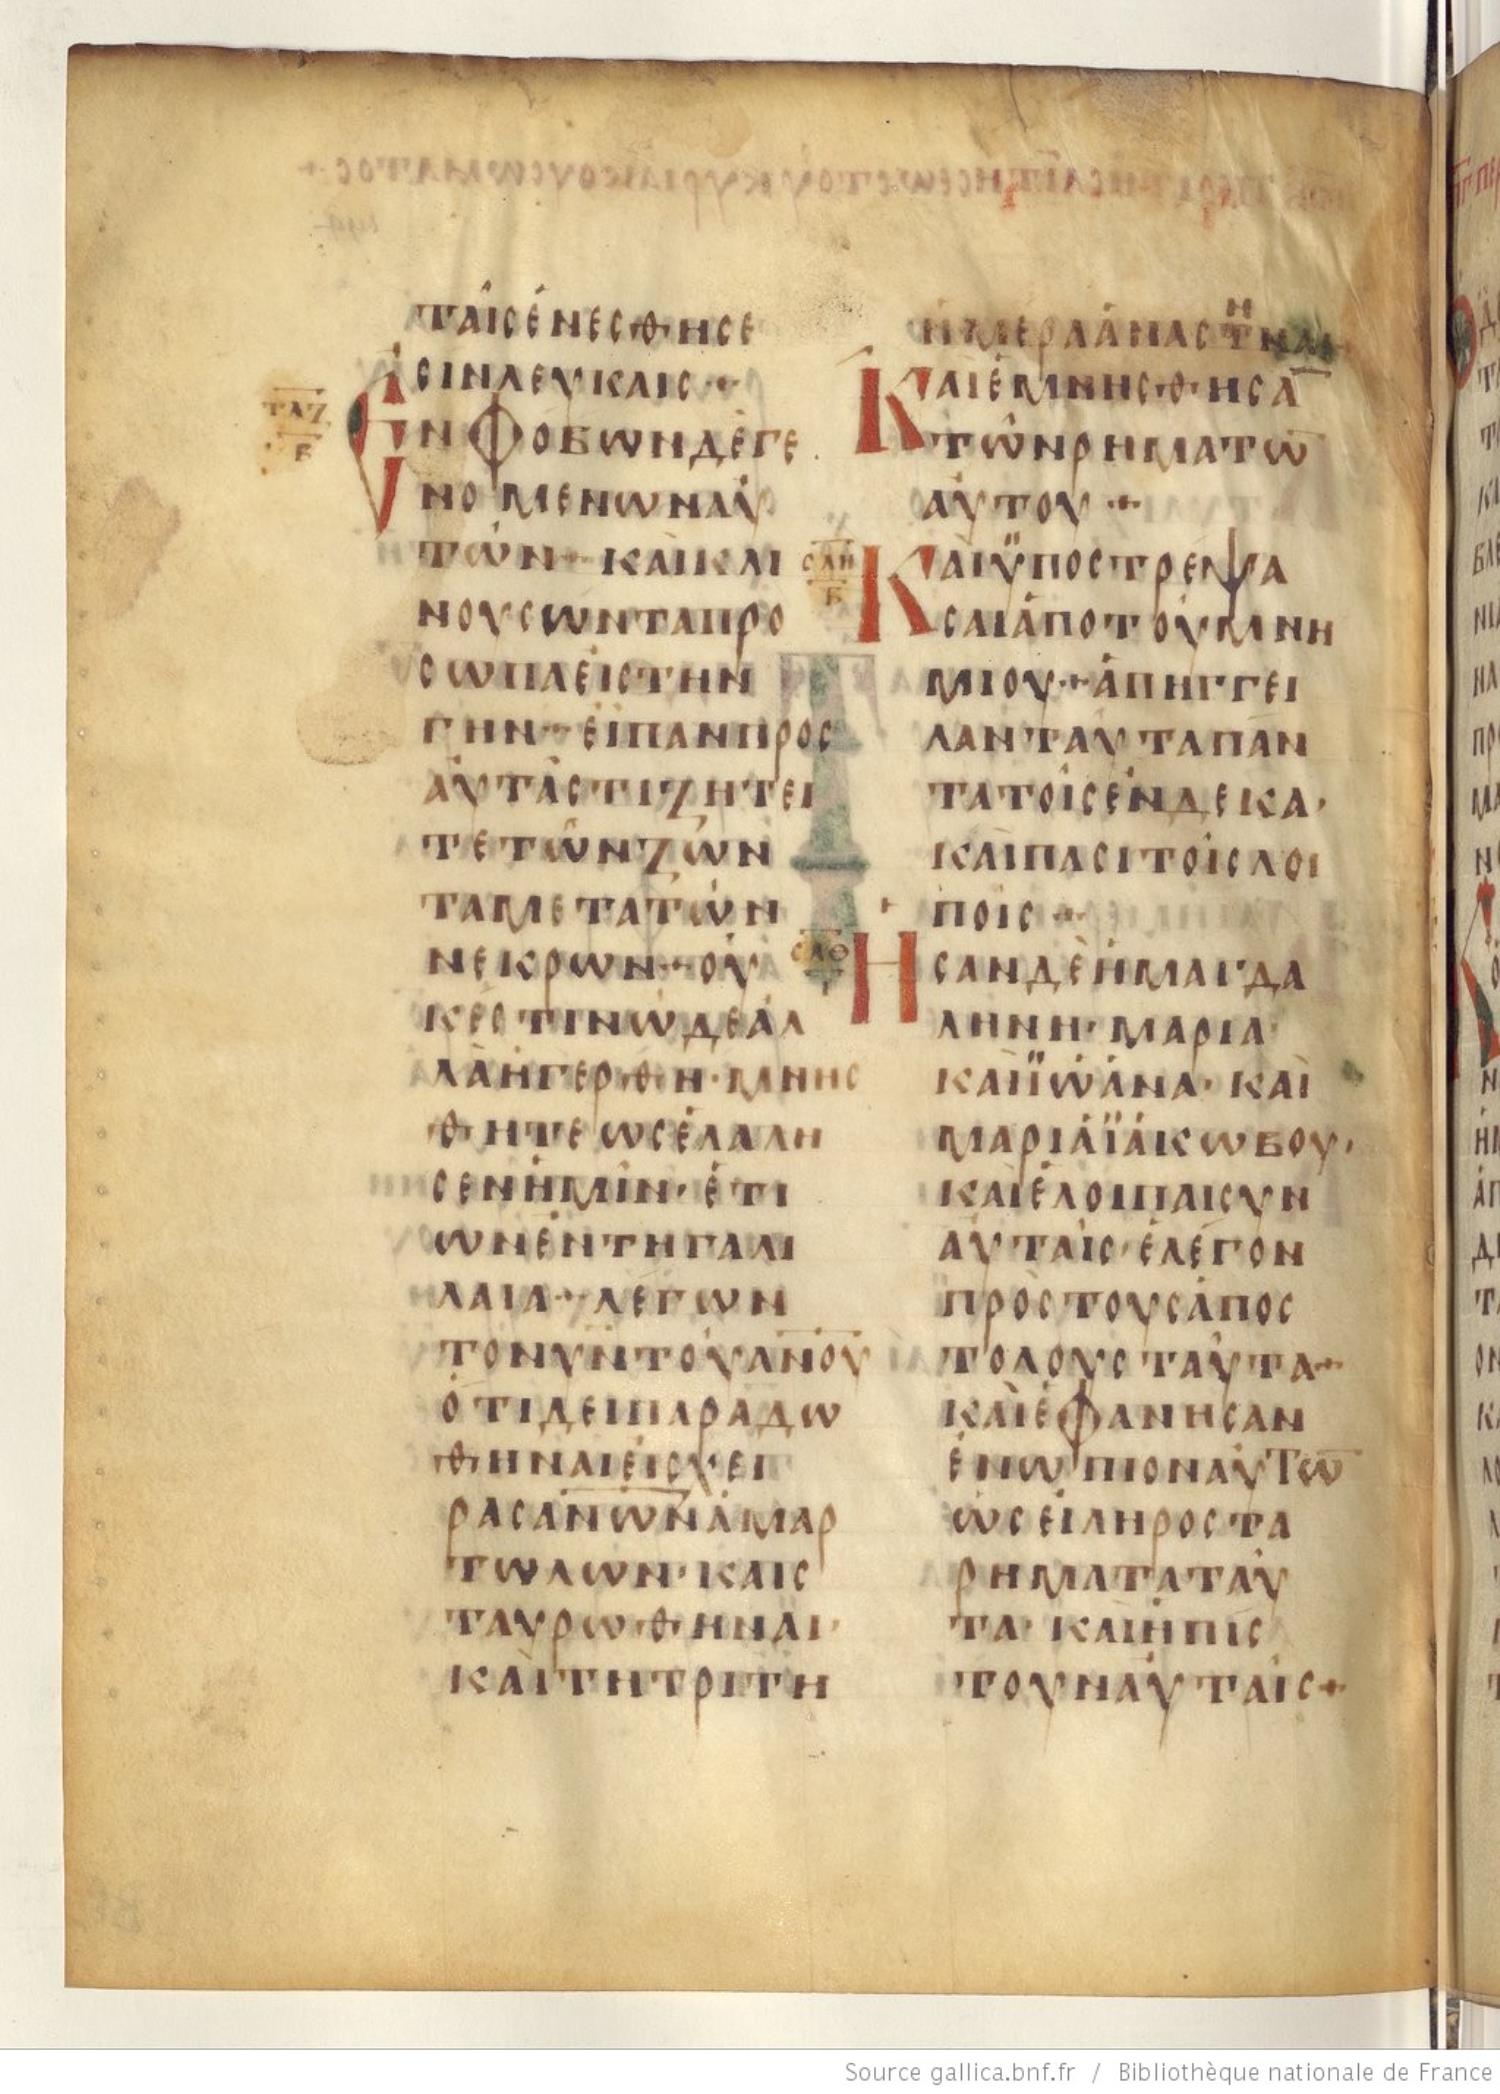 ΤΑΙCΕΝΕCΘΗCΕ
CΙΝΛΕΥΚΑΙC
ΕΝΦΟΒΩΝΔΕΓΕ
ΝΟΜΕΝΩΝΑΥ
ΤΩΝ· ΚΑΙΚΛΙ
ΝΟΥCΩΝΤΑΠΡΟ
CΩΠΑΕΙCΤΗΝ
ΓΗΝ· ΕΙΠΑΝΠΡΟC
ΑΥΤΑCΤΙΖΗΤΕΙ
ΤΕΤΩΝΖΩΝ
ΤΑΜΕΤΑΤΩΝ
ΝΕΚΡΩΝ· ΟΥ
ΚΕCΤΙΝΩΔΕΑΛ
ΛΑΗΓΕΡΘΗ· ΜΝΗC
ΘΗΤΕΩCΕΛΑΛΗ
CΕΝΗΜΙΝ· ΕΤΙ
ΩΝΕΝΤΗΓΑΛΙ
ΛΑΙΑ· ΛΕΓΩΝ
ΤΟΝΥΝΤΟΥΑΝΟΥ
ΟΤΙΔΕΙΠΑΡΑΔΩ
ΘΗΝΑΙΕΙCΧΕΙ
ΡΑCΑΝΩΝΑΜΑΡ
ΤΩΛΩΝ· ΚΑΙC
ΤΑΥΡΩΘΗΝΑΙ·
ΚΑΙΤΗΤΡΙΤΗ
ΗΜΕΡΑΑΝΑCΤΗΝΑΙ
ΚΑΙΕΜΝΗCΘΗCΑ̅
ΤΩΝΡΗΜΑΤΩ̅
ΑΥΤΟΥ
CΛΗ
Β
ΚΑΙΫΠΟCΤΡΕΨΑ
CΑΙΑΠΟΤΟΥΜΝΗ
ΜΙΟΥ· ΑΠΗΓΓΕΙ
ΛΑΝΤΑΥΤΑΠΑΝ
ΤΑΤΟΙCΕΝΔΕΚΑ·
ΚΑΙΠΑCΙΤΟΙCΛΟΙ
ΠΟΙC
CΛΘ
ΗCΑΝΔΕΗΜΑΓΔΑ
ΛΗΝΗ· ΜΑΡΙΑ·
ΚΑΙΪΩΑΝΑ· ΚΑΙ
ΜΑΡΙΑΪΑΚΩΒΟΥ·
ΚΑΙΕΛΟΙΠΑΙCΥΝ
ΑΥΤΑΙC· ΕΛΕΓΟΝ
ΠΡΟCΤΟΥCΑΠΟC
ΤΟΛΟΥCΤΑΥΤΑ
ΚΑΙΕΦΑΝΗCΑΝ
ΕΝΩΠΙΟΝΑΥΤΩ̅
ΩCΕΙΛΗΡΟCΤΑ
ΡΗΜΑΤΑΤΑΥ
ΤΑ· ΚΑΙΗΠΙC
ΤΟΥΝΑΥΤΑΙC
Source gallica.bnf.fr / Bibliothèque nationale de France